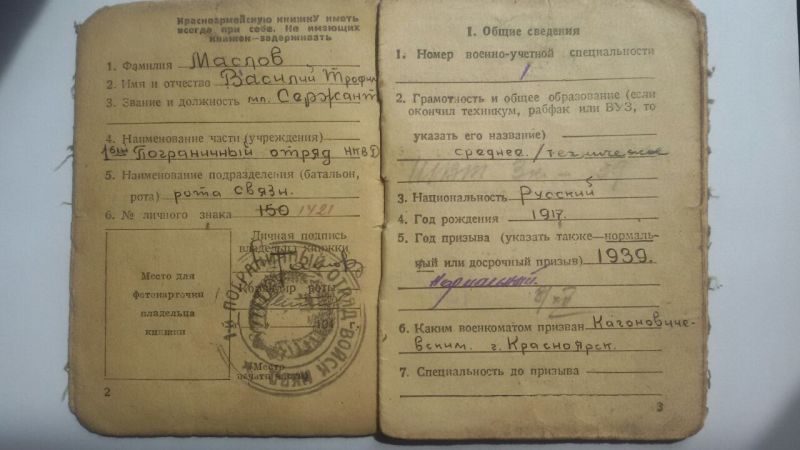 Красноармейскую книжку иметь
всегда при себе. Не имеющих
книжек—задерживать
1. Фамилия Маслов
2. Имя и отчество Василий Трофим
3. Звание и должность мл. Сержант
4. Наименование части (учреждения)
Пограничный отряд НКВД
5. Наименование подразделения (батальон,
рота) рота связи.
6. № личного знака 150 1421
Личная подпись
владельца книжки
Место для
фотокарточки
владельца
книжки
Командир роты
Место
печати
1-й ПОГРАНИЧНЫЙ ОТРЯД ВОЙСК НКВД
2
I. Общие сведения
1. Номер военно-учетной специальности
1
2. Грамотность и общее образование (если
окончил техникум, рабфак или ВУЗ, то
указать его название)
среднее/техническое
3. Национальность Русский
4. Год рождения 1917.
5. Год призыва (указать также—нормаль-
ный или досрочный призыв) 1939.
Нормальный.
6. Каким военкоматом призван Кагоновиче-
вским. г. Красноярск.
7. Специальность до призыва
3